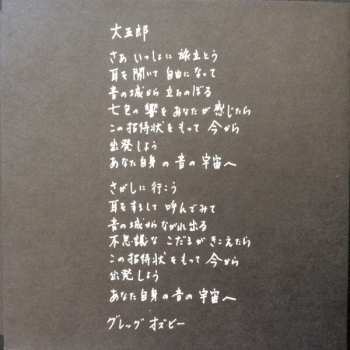 大五郎
さあ いっしょに 旅立とう
耳を開いて 自由になって
音の城から 立ちのぼる
七色の 響を あなたが 感じたら
この招待状を もって 今から
出発しよう
あなた自身の 音の宇宙へ
さがしに 行こう
耳をすまして 呼んでみて
音の城から ながれ出る
不思議な こだまが きこえたら
この招待状を もって 今から
出発しよう
あなた自身の 音の宇宙へ
グレッグ オズビー